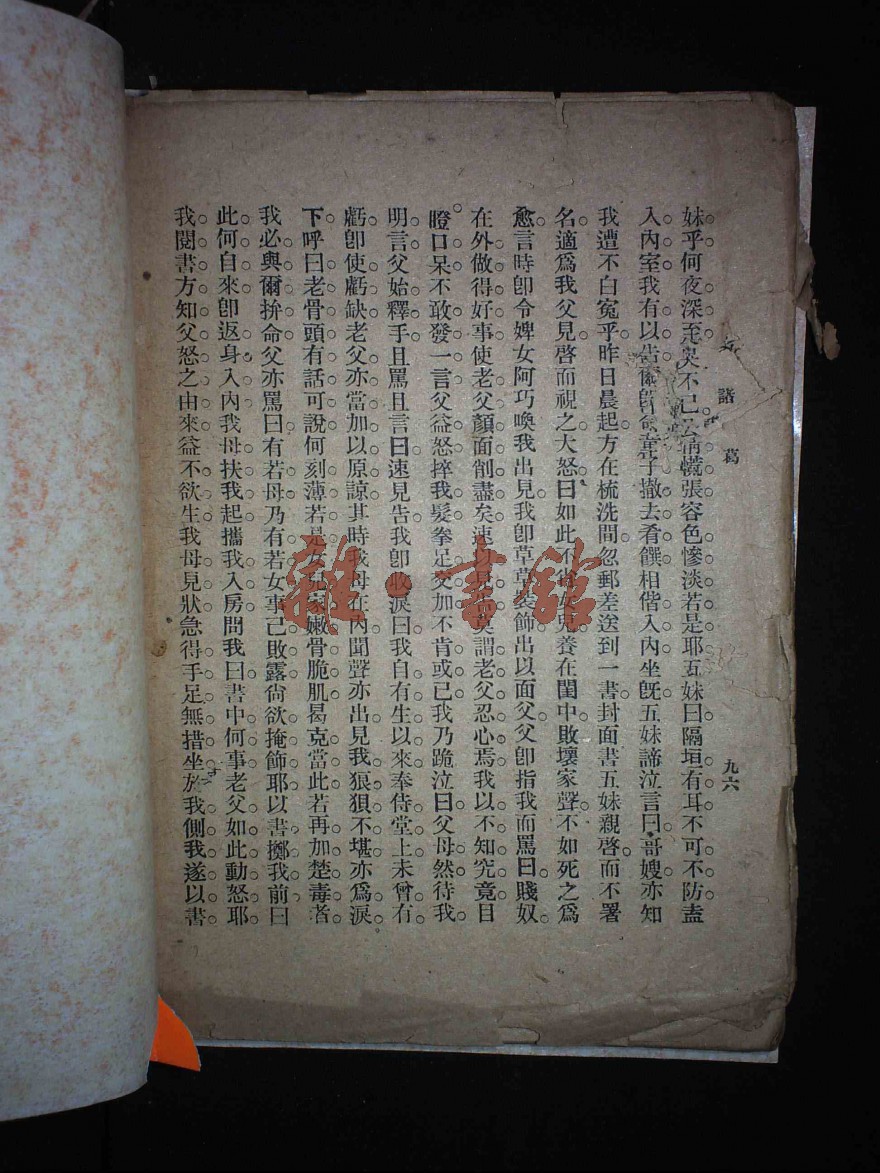 諸葛
九六
妹乎何夜深至是不已公情慌張容色慘淡若是耶五妹曰隔垣有耳不可不防盍
入內室我有以告衞卽命童子撤去肴饌相偕入內坐旣五妹諦泣言曰哥嫂亦知
我遭不白寃乎昨日晨起方在梳洗間忽郵差送到一書封面書五妹親啓而不署
名適爲我父見啓而視之大怒曰如此不肖女兒養在閨中敗壞家聲不如死之爲
愈言時卽令婢女阿巧喚我出見我卽草草裝飾出以面父父卽指我而罵曰賤奴
在外做得好事使老父顏面削盡矣速以見告莫謂老父忍心焉我以不知究竟目
瞪口呆不敢發一言父益怒摔我髮拳足交加不肯或已我乃跪泣曰父母然待我
明言父始釋手且罵且言曰速見告我卽收淚曰我自有生以來奉侍堂上未曾有
虧卽使虧缺老父亦當加以原諒其時我母在內聞聲亦出見我狼狽不堪亦爲淚
下呼曰老骨頭有話可說何刻薄若是女兒家嫩骨脆肌曷克當此若再加楚毒者
我必與爾拚命父亦罵曰有若母乃有若女事已敗露尙欲掩飾耶以書擲我前曰
此何自來卽返身入內我母扶我起攜我入房問我曰書中何事老父如此動怒耶
我閱書方知父怒之由來益不欲生我母見狀急得手足無措坐於我側我遂以書
雜·書館